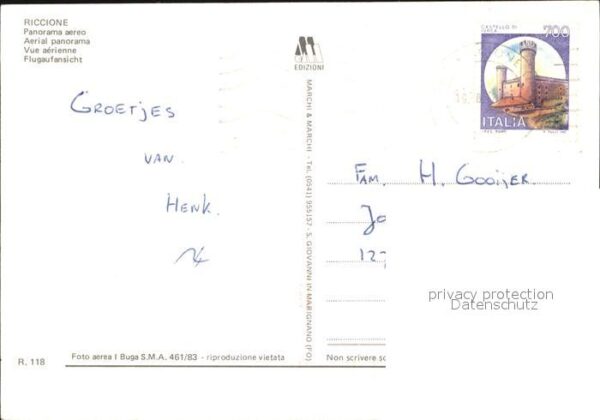 RICCIONE
Panorama aereo
Aerial panorama
Vue aérienne
Flugaufansicht
EDIZIONI
CASTELLO DI
IVREA
700
ITALIA
GROETJES
VAN
HENK.
FAM. H. Gooijer.
Jo
12
privacy protection
Datenschutz
MARCHI & MARCHI - Tel. (0541) 955157 - S. GIOVANNI IN MARIGNANO (FO)
R. 118
Foto aerea I Buga S.M.A. 461/83 - riproduzione vietata
Non scrivere